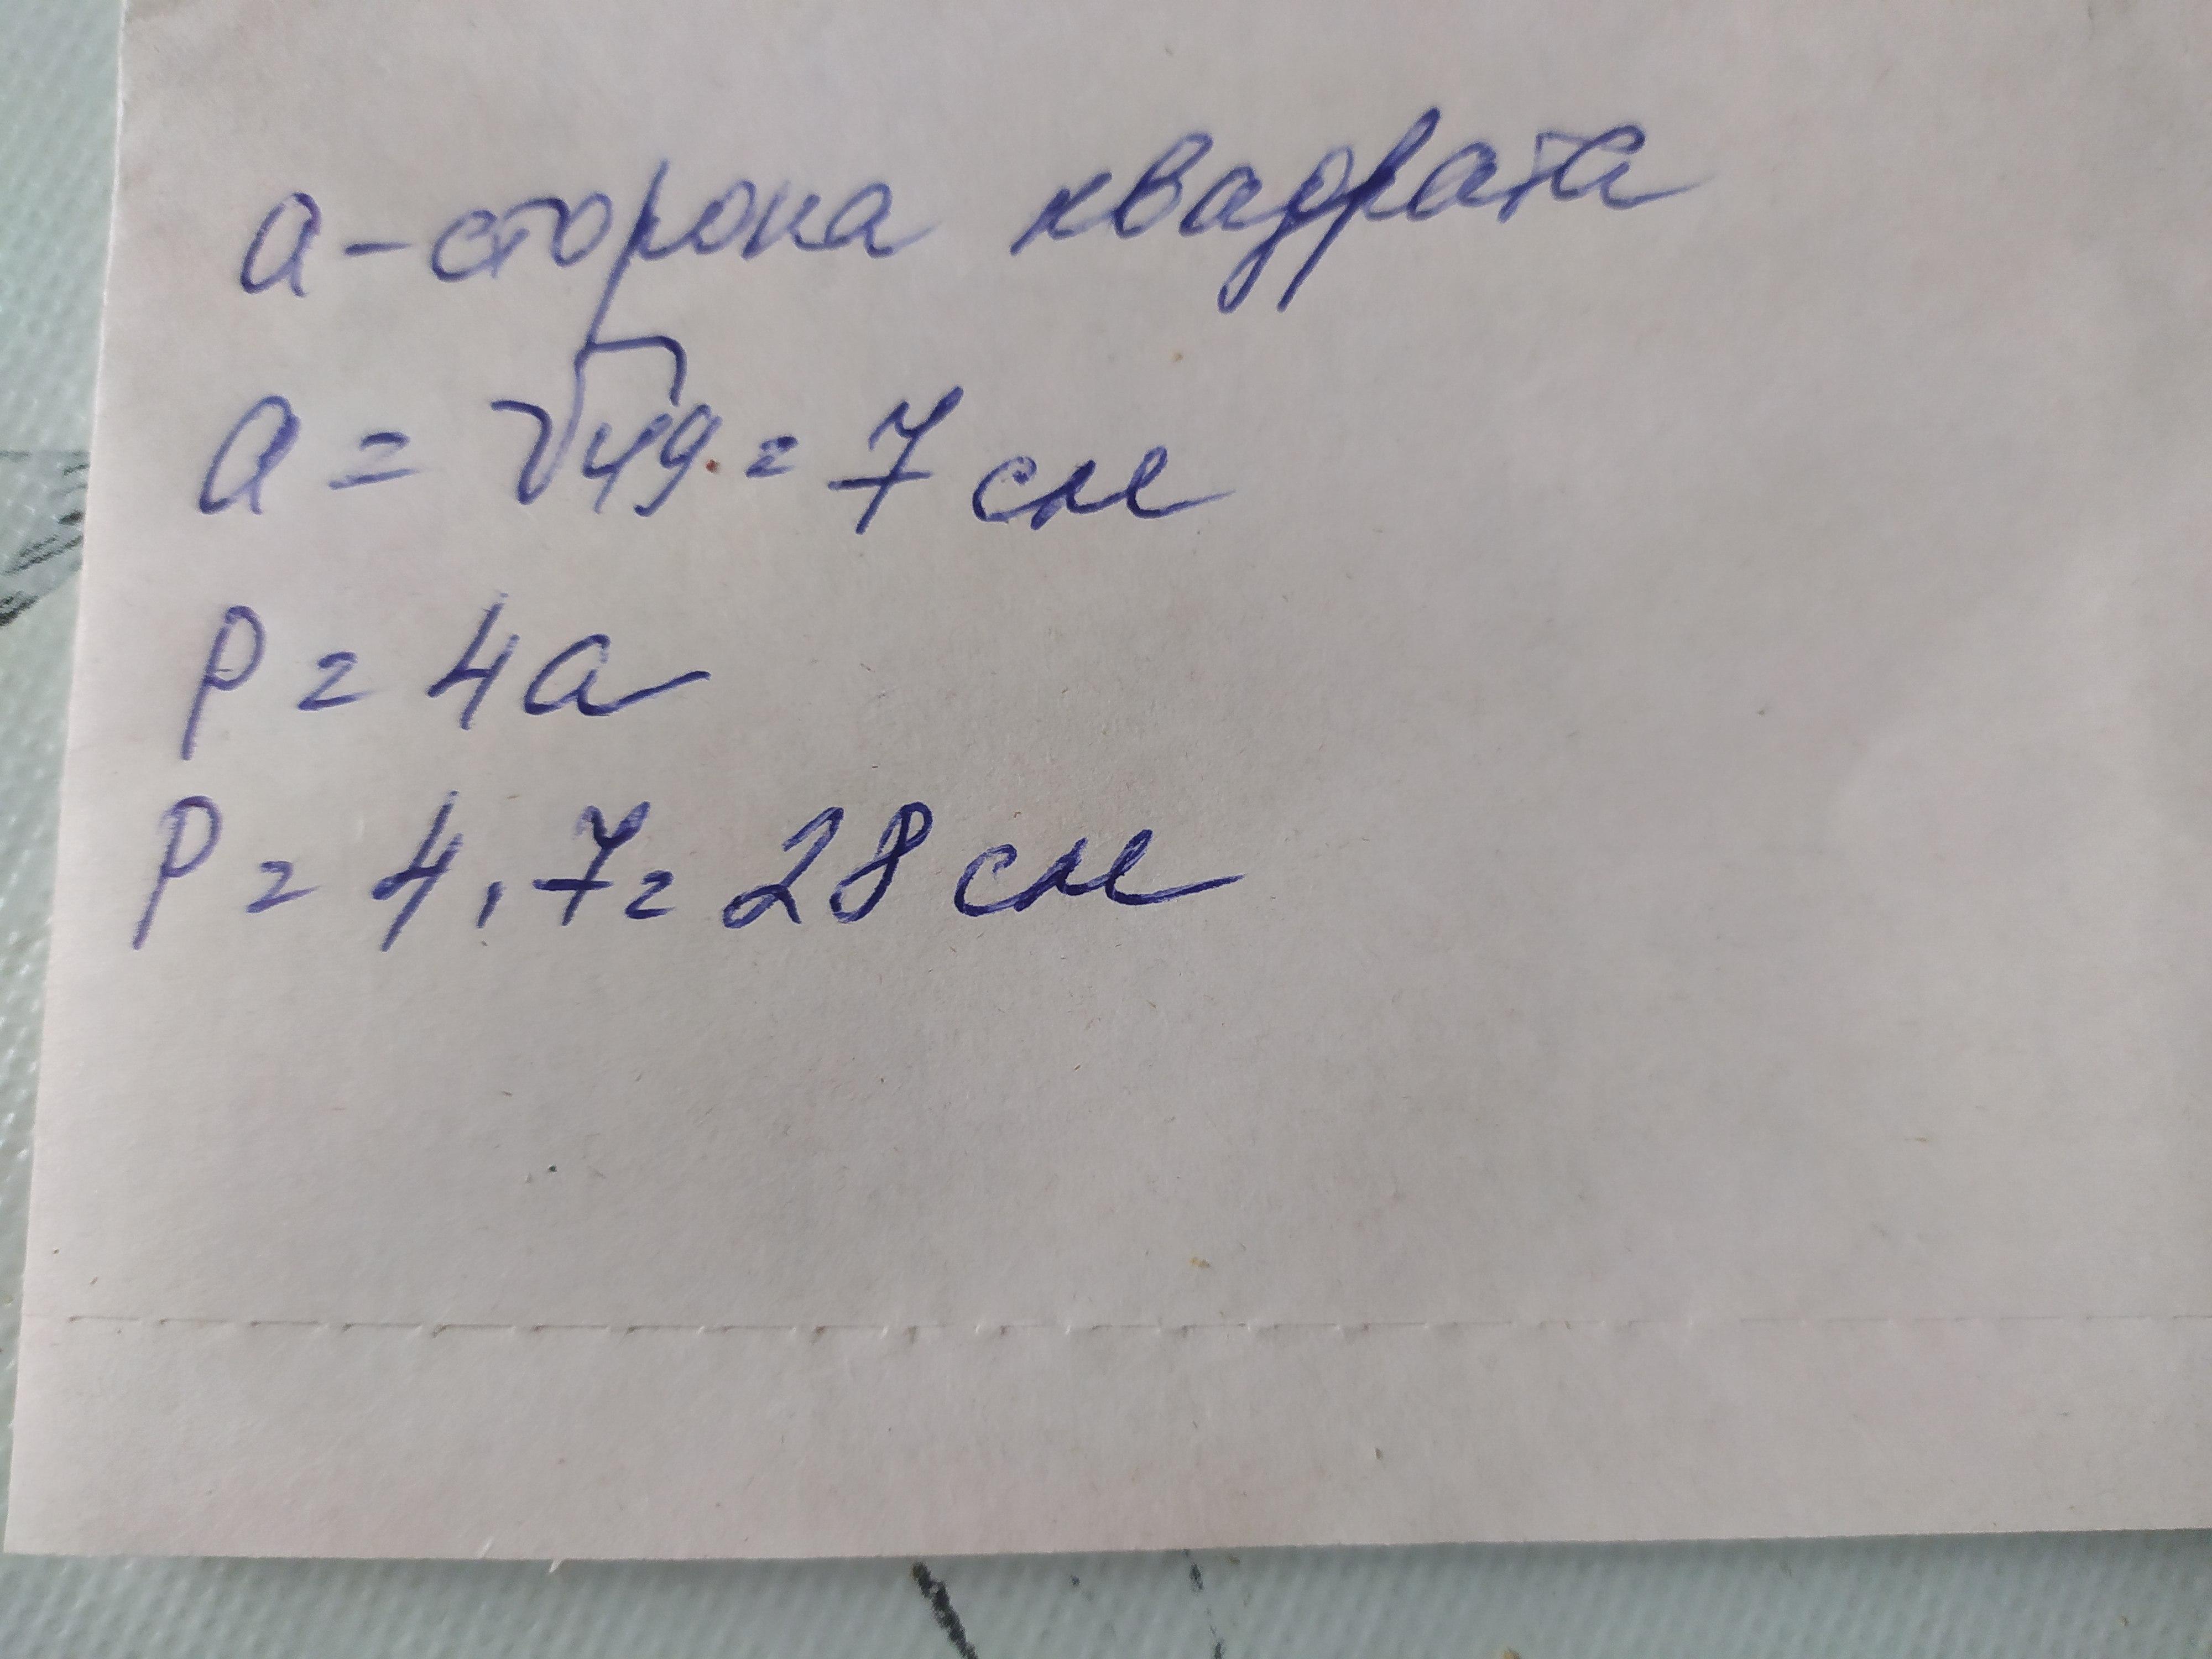 a - сторона квадрата
a = √49 = 7 см
P = 4a
P = 4 · 7 = 28 см